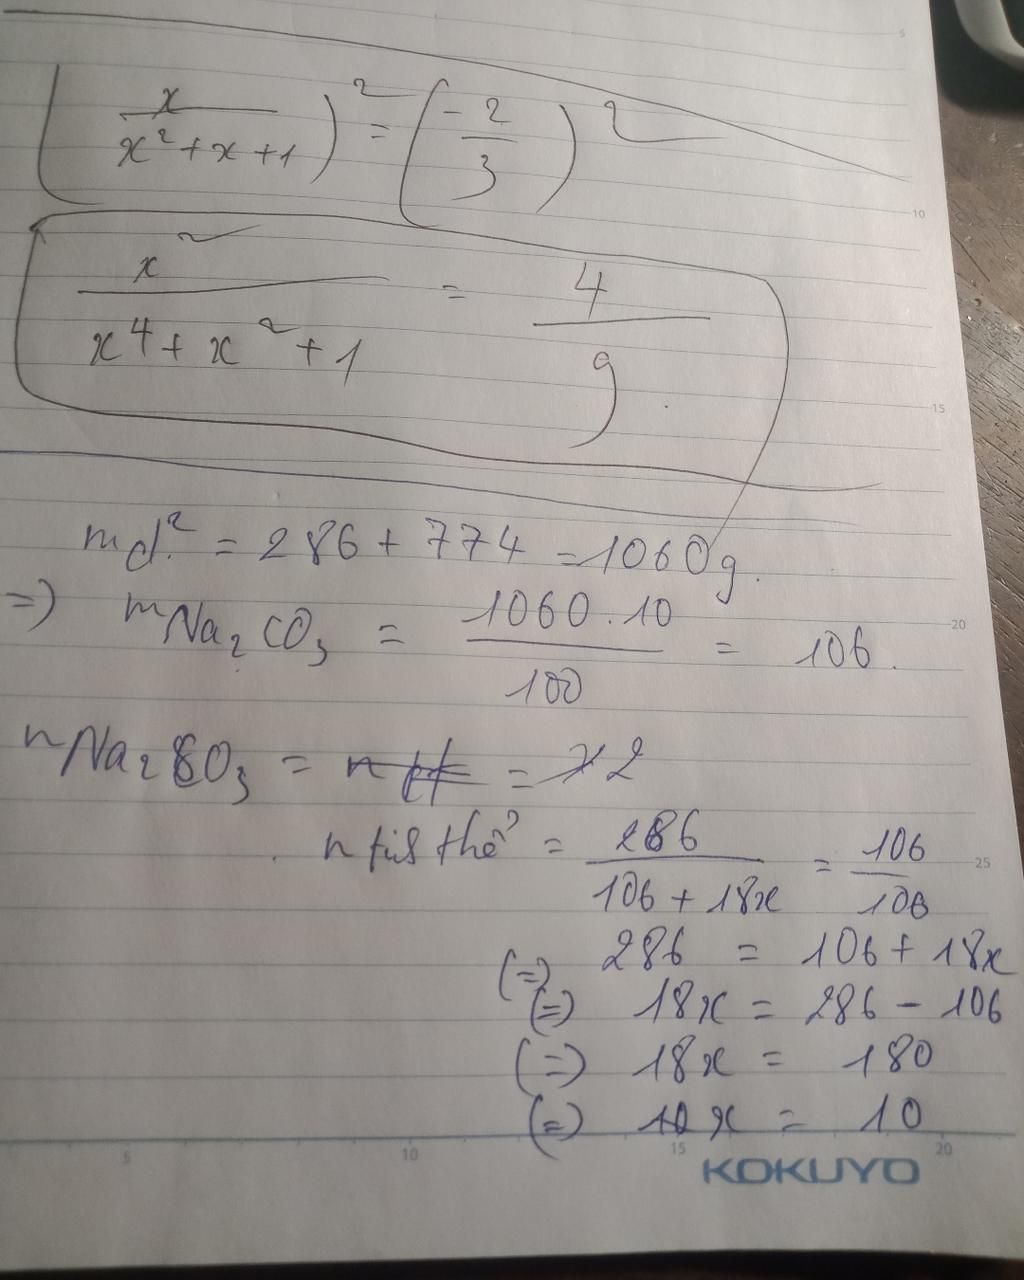 (x / (x² + x + 1))² = (-2 / 3)²
x² / (x⁴ + x² + 1) = 4 / 9
md² = 286 + 774 = 1060g.
=) mNa₂CO₃ = 1060.10 / 100 = 106.
nNa₂CO₃ = = 2
n thể = 286 / (106 + 18x) = 106 / 106
(=) 286 = 106 + 18x
(=) 18x = 286 - 106
(=) 18x = 180
(=) x = 10
5 10 15 20
5
10
15
20
25
KOKUYO